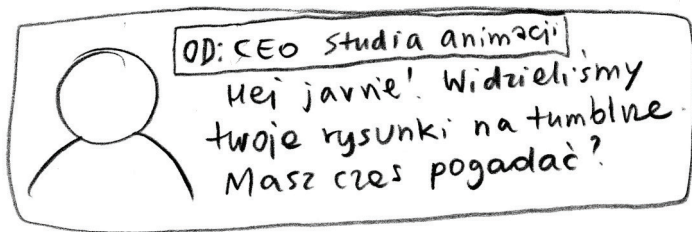 OD: CEO studia animacji
Hej jarvie! Widzieliśmy
twoje rysunki na tumblrze
Masz czas pogadać?